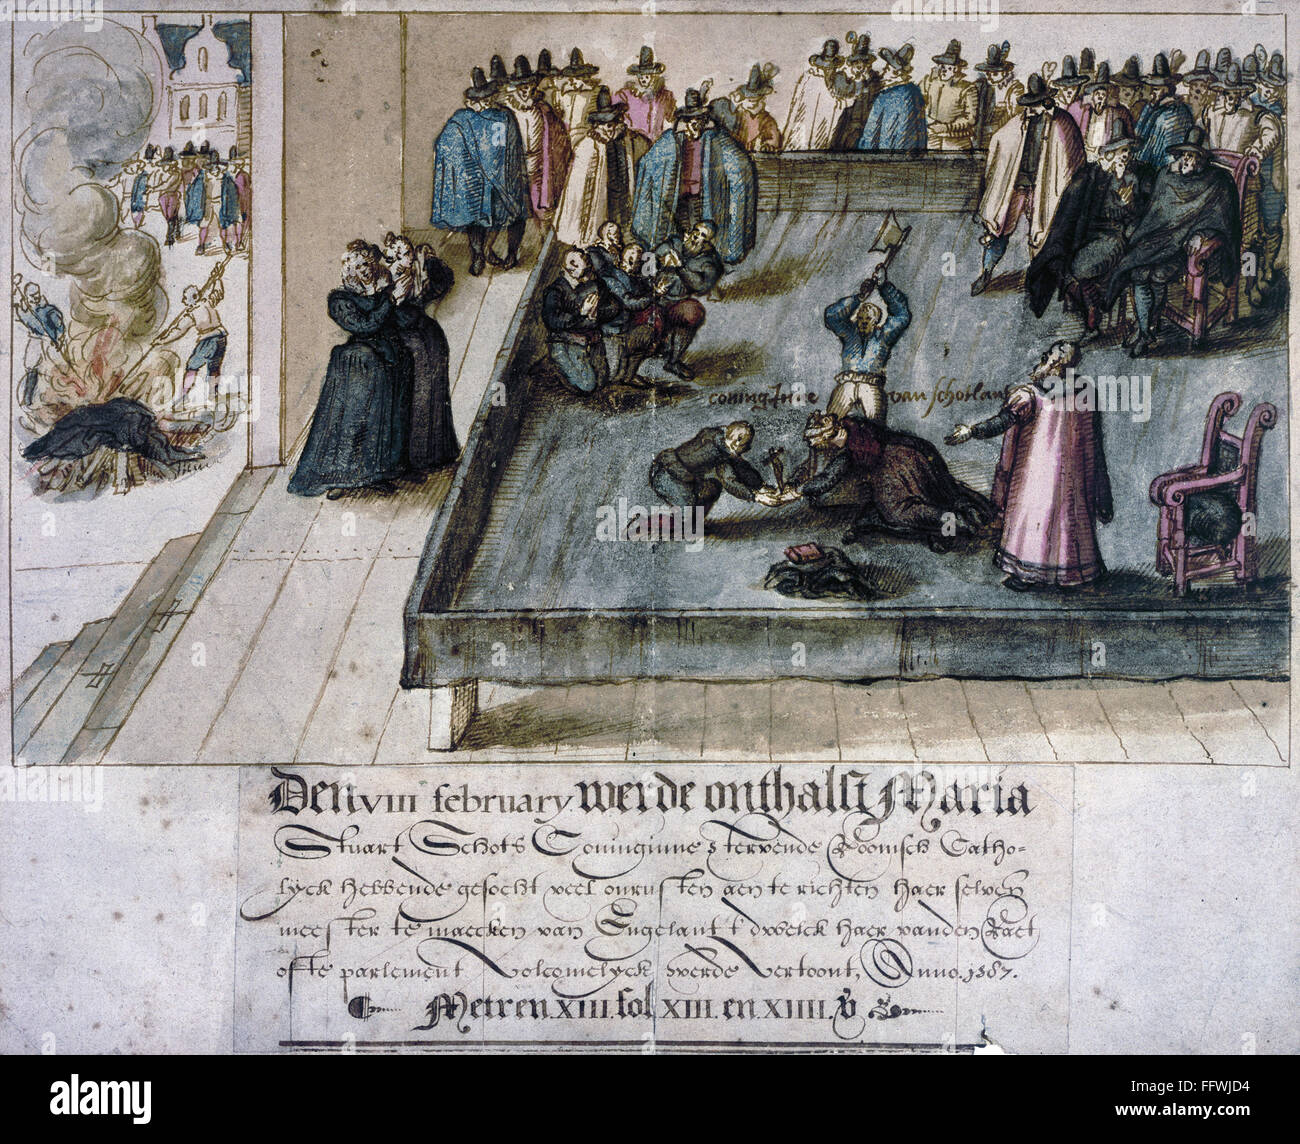 coningInne van schotlan
Den VIII february werde onthalst Maria
Stuart Schots Coninginne stervende Roomsck Catho-
lyck hebbende gesocht veel onrusten aen te richten haer selven
meester te maecken van Engelant t'dwelck haer vanden Raet
ofte parlement volcomelyck werde vertoont, Anno. 1587.
Metren. XIII. fol XIII. en. XIIII. v
alamy
Image ID: FFWJD4
www.alamy.com